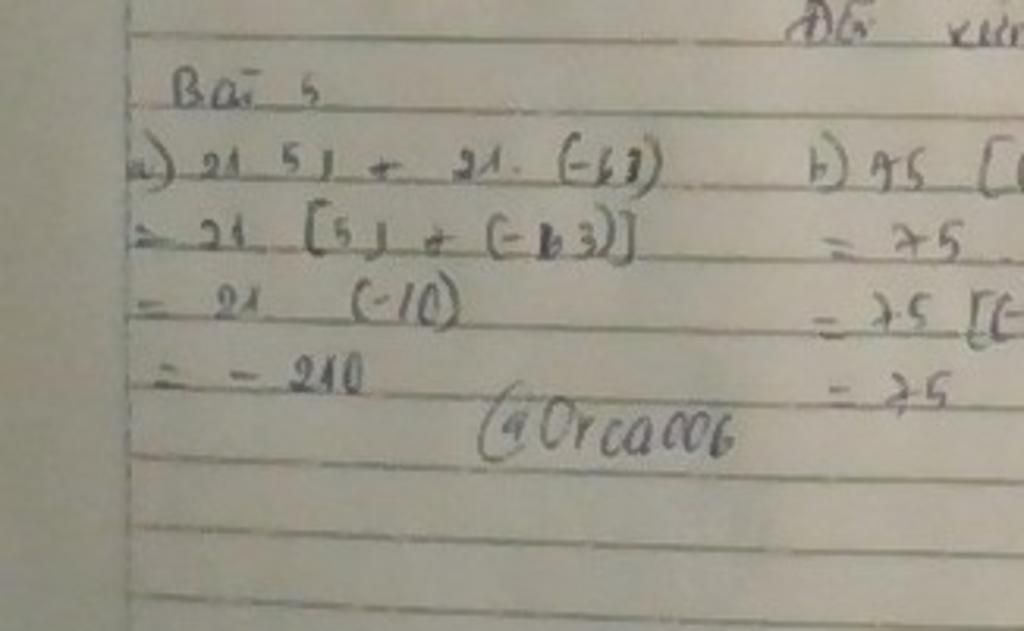 Bài 5
a) 21 53 + 21. (-63)
= 21 [53 + (-63)]
= 21 (-10)
= - 210
b) 75 [(
= 75
= 75 [(-
= 75
@Orca006